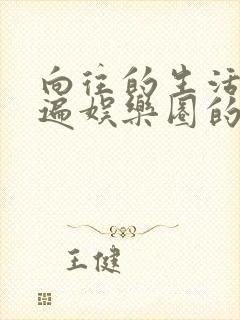 向往的生活
遍娱乐圈的
王健